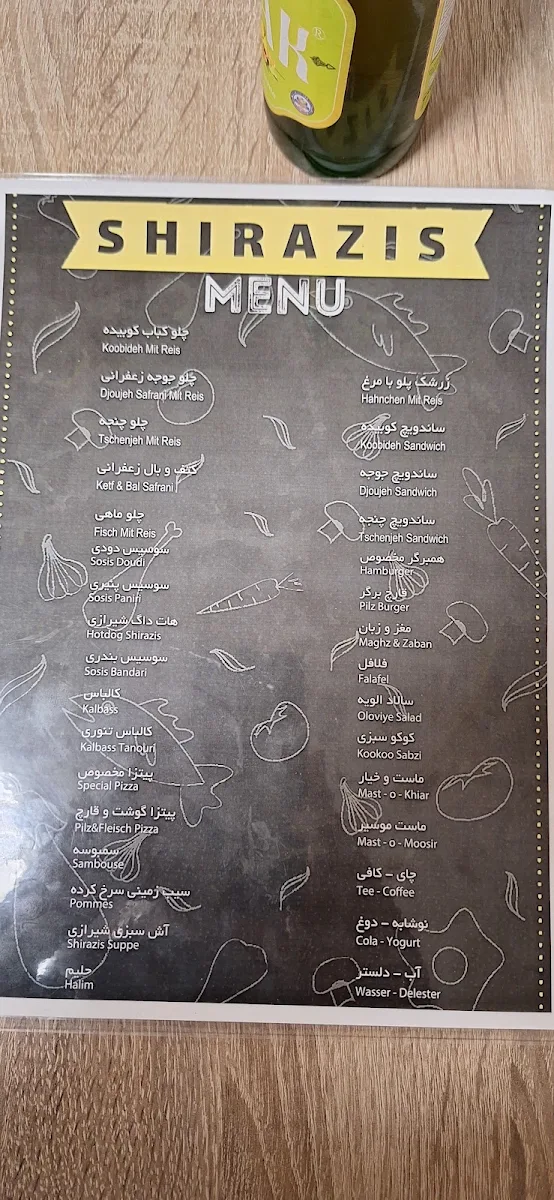 SHIRAZIS
MENU
چلو کباب کوبیده
Koobideh Mit Reis
چلو جوجه زعفرانی
Djoujeh Safrani Mit Reis
چلو چنجه
Tschenjeh Mit Reis
کتف و بال زعفرانی
Ketf & Bal Safrani
چلو ماهی
Fisch Mit Reis
سوسیس دودی
Sosis Doudi
سوسیس پنیری
Sosis Paniri
هات داگ شیرازی
Hotdog Shirazis
سوسیس بندری
Sosis Bandari
کالباس
Kalbass
کالباس تنوری
Kalbass Tanouri
پیتزا مخصوص
Special Pizza
پیتزا گوشت و قارچ
Pilz&Fleisch Pizza
سمبوسه
Sambouse
سیب زمینی سرخ کرده
Pommes
آش سبزی شیرازی
Shirazis Suppe
حلیم
Halim
زرشک پلو با مرغ
Hahnchen Mit Reis
ساندویچ کوبیده
Koobideh Sandwich
ساندویچ جوجه
Djoujeh Sandwich
ساندویچ چنجه
Tschenjeh Sandwich
همبرگر مخصوص
Hamburger
قارچ برگر
Pilz Burger
مغز و زبان
Maghz & Zaban
فلافل
Falafel
سالاد الویه
Oloviye Salad
کوکو سبزی
Kookoo Sabzi
ماست و خیار
Mast - o - Khiar
ماست موسیر
Mast - o - Moosir
چای – کافی
Tee - Coffee
نوشابه – دوغ
Cola - Yogurt
آب – دلستر
Wasser - Delester